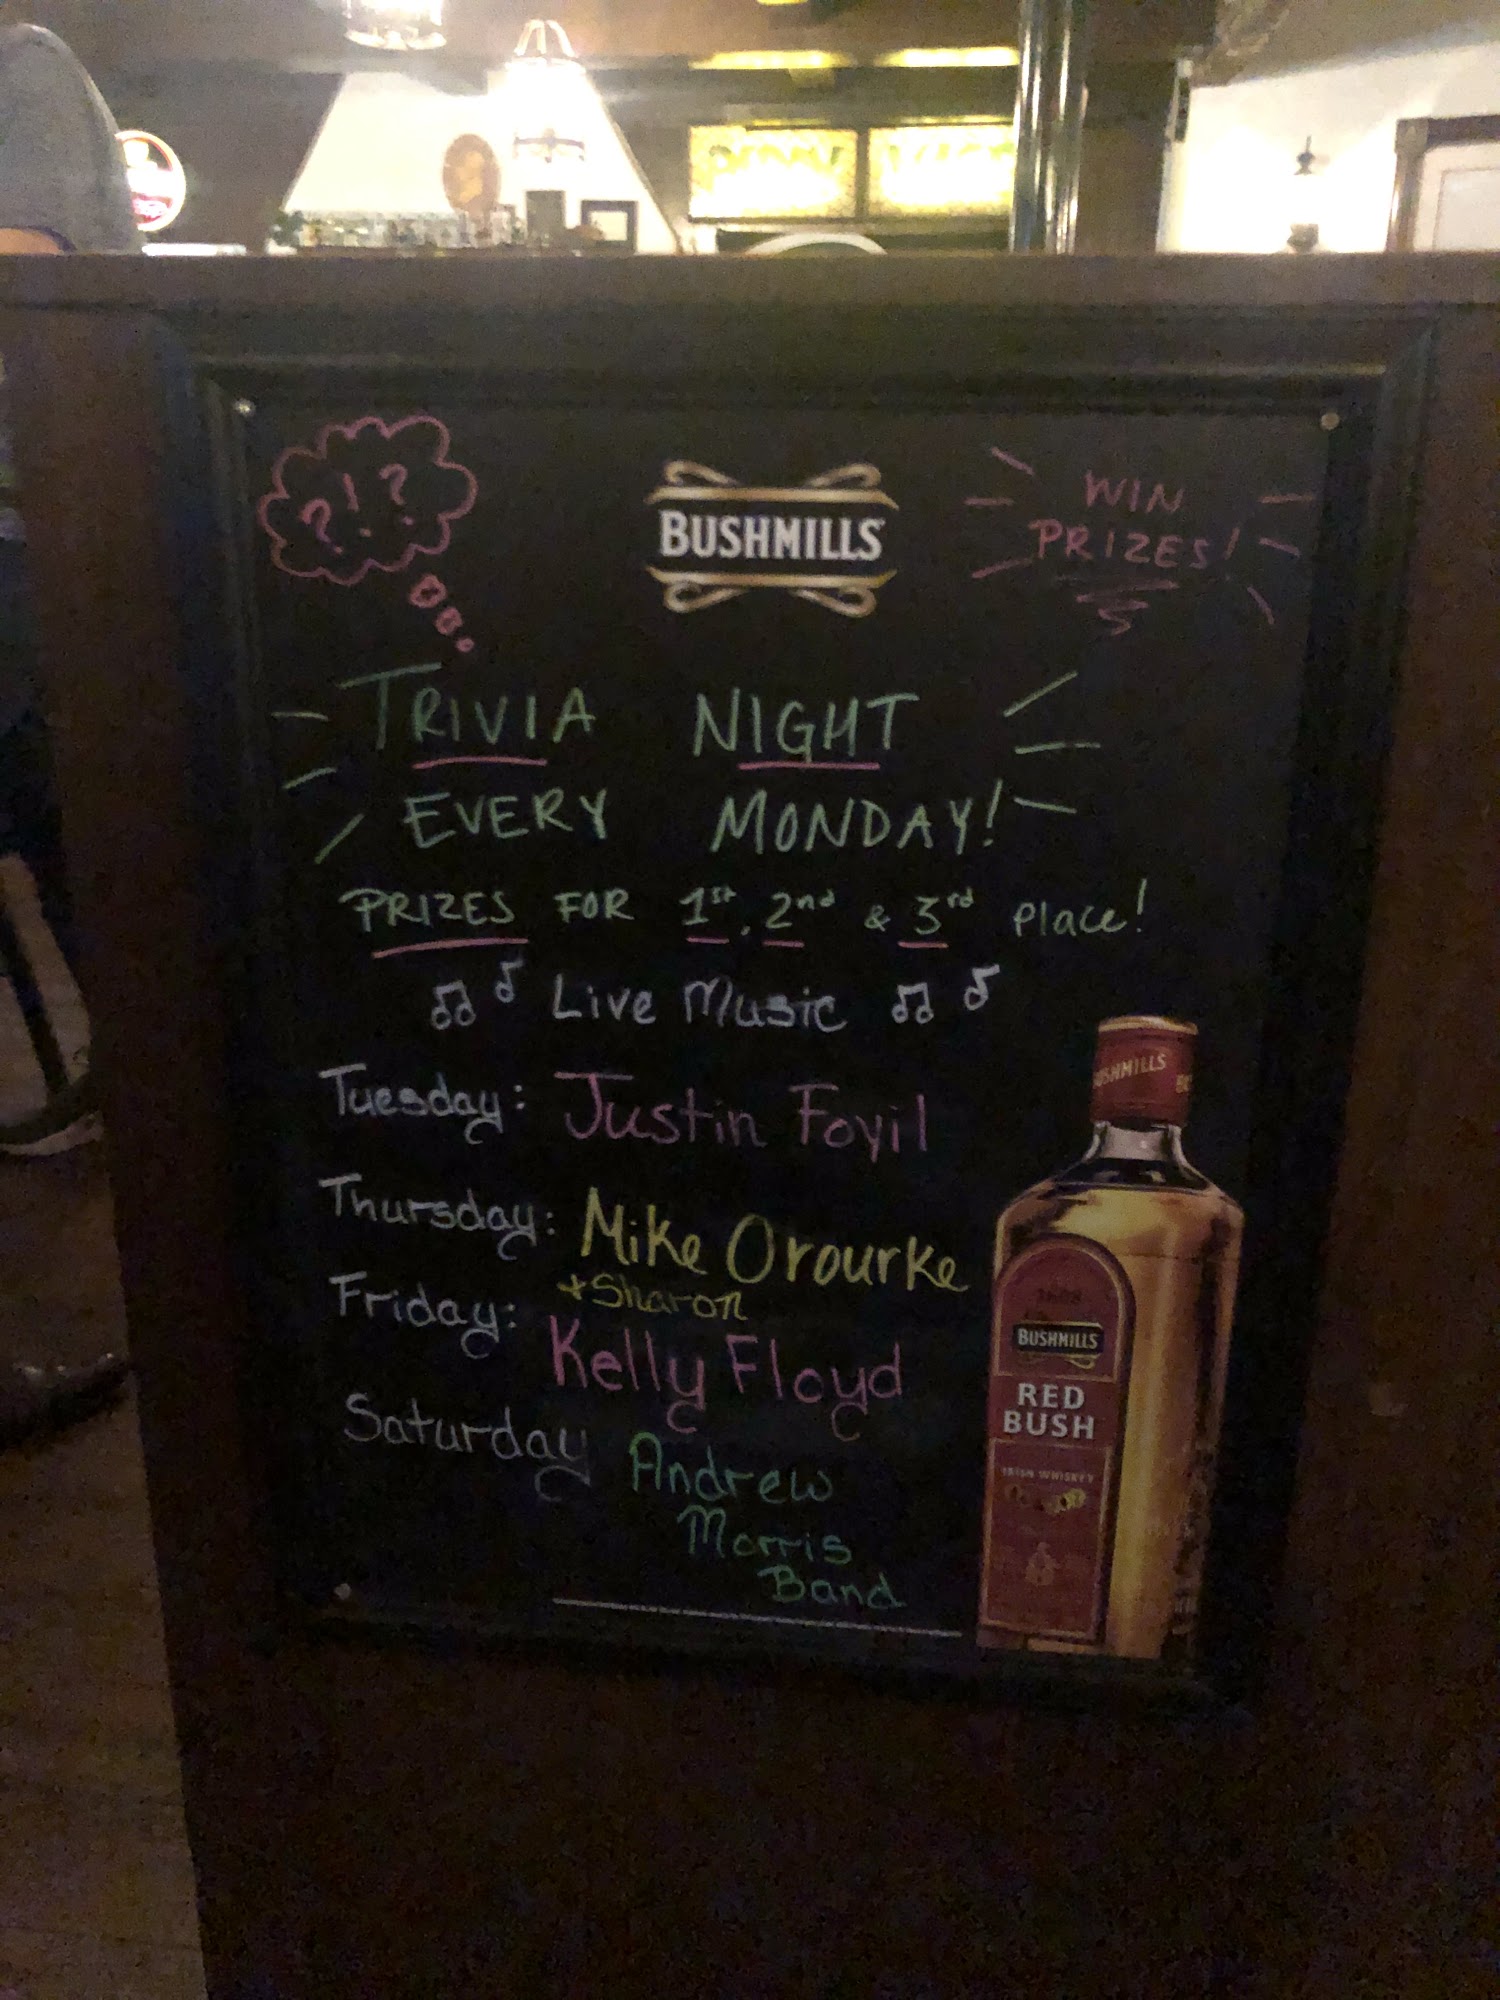 ?!?
BUSHMILLS
WIN
PRIZES!
TRIVIA NIGHT
EVERY MONDAY!
PRIZES FOR 1st, 2nd & 3rd Place!
Live Music
Tuesday: Justin Foyil
Thursday: Mike Orourke
+ Sharon
Friday: Kelly Floyd
Saturday Andrew
Morris
Band
BUSHMILLS
1608
BUSHMILLS
RED
BUSH
IRISH WHISKEY